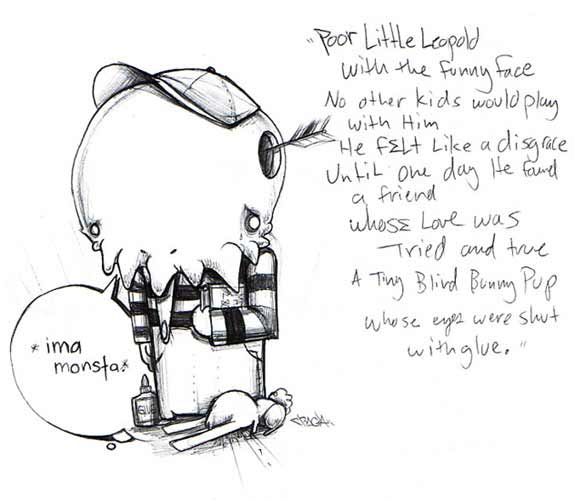 "Poor Little Leopold
with the funny face
No other kids would play
with Him
He FELT Like a disgrace
Until one day He found
a friend
whose Love was
Tried and true
A Tiny Blind Bunny Pup
whose eyes were shut
with glue."
*ima
monsta*
GLU